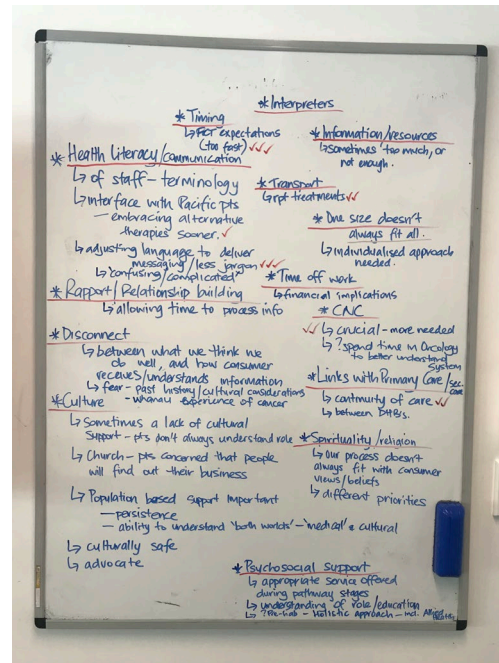 * Interpreters
* Timing
↳ FCT expectations
(too fast) ✓✓✓
* Information/resources
↳ sometimes too much, or
not enough.
* Health Literacy/communication
↳ of staff – terminology
↳ interface with Pacific pts
– embracing alternative
therapies sooner. ✓
↳ adjusting language to deliver
messaging/less jargon ✓✓✓
↳ 'confusing/complicated'
* Transport
↳ rpt treatments ✓✓
* One size doesn't
always fit all.
↳ individualised approach
needed.
* Time off work
↳ financial implications
* Rapport/Relationship building
↳ allowing time to process info
* CNC
✓✓ ↳ crucial – more needed
↳ ? spend time in Oncology
to better understand
system
* Disconnect
↳ between what we think we
do well, and how consumer
receives/understands information
↳ fear – past history/cultural considerations
– whanau experience of cancer
* Links with Primary Care/sec.
care
↳ continuity of care ✓✓
↳ between DHBs.
* Culture
↳ Sometimes a lack of cultural
support – pts don't always understand role
↳ Church – pts concerned that people
will find out their business
↳ Population based support important
– persistence
– ability to understand 'both worlds' – 'medical' & cultural
↳ culturally safe
↳ advocate
* Spirituality/religion
↳ Our process doesn't
always fit with consumer
views/beliefs
↳ different priorities
* Psychosocial support
↳ appropriate service offered
during pathway stages
↳ understanding of role/education
↳ ? Pre-hab – Holistic approach – incl. Allied
Health